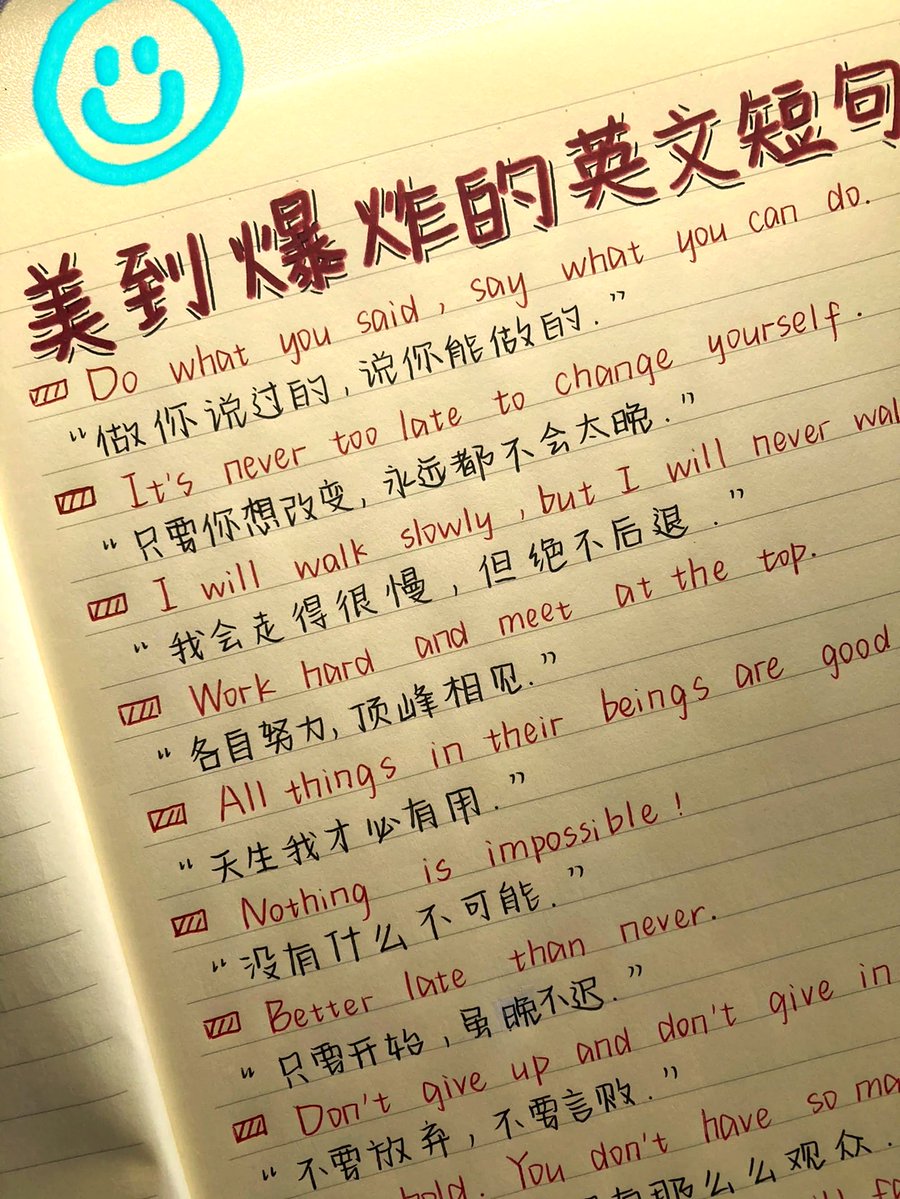 美到爆炸的英文短句
Do what you said, say what you can do.
“做你说过的,说你能做的.”
It's never too late to change yourself.
“只要你想改变,永远都不会太晚.”
I will walk slowly, but I will never
“我会走得很慢,但绝不后退.”
Work hard and meet at the top.
“各自努力,顶峰相见.”
All things in their beings are good
“天生我才必有用.”
Nothing is impossible!
“没有什么不可能.”
Better late than never.
“只要开始,虽晚不迟.”
Don't give up and don't give in
“不要放弃,不要言败.”
You don't have so
那么么观众.